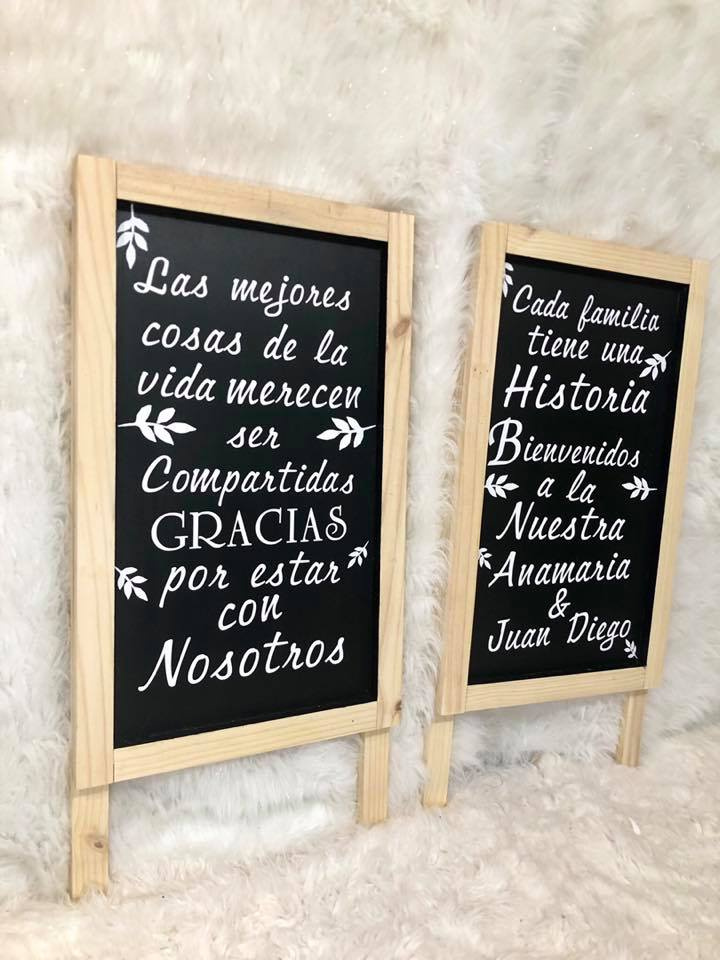 Las mejores
cosas de la
vida merecen
ser
Compartidas
GRACIAS
por estar
con
Nosotros
Cada familia
tiene una
Historia
Bienvenidos
a la
Nuestra
Anamaria
&
Juan Diego